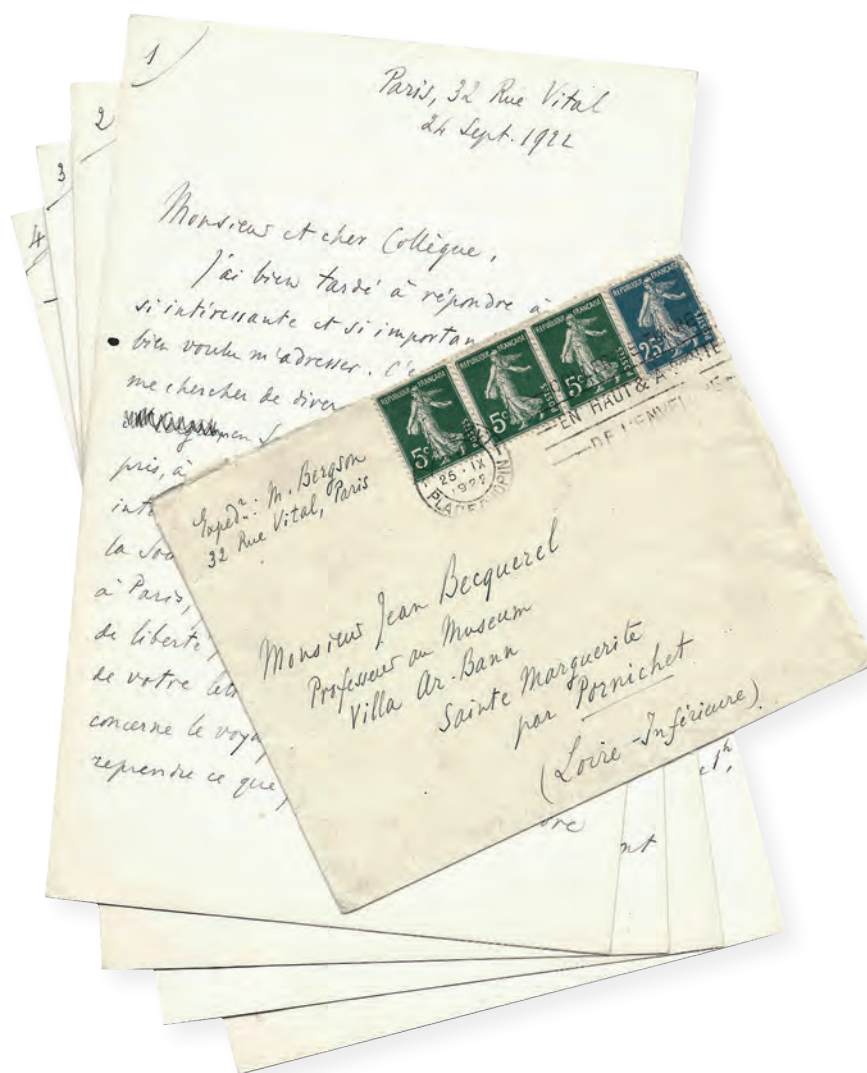 1
Paris, 32 Rue Vital
24 Sept. 1922
2
3
4
Monsieur et cher Collègue,
J'ai bien tardé à répondre à
si intéressante et si importan
bien voulu m'adresser. C'e
me chercher de diver
pris, à
inte
la Soc
à Paris,
de liberté
de votre let
concerne le voya
reprendre ce que
ore
nt
REPUBLIQUE FRANÇAISE
POSTES
5c
REPUBLIQUE FRANÇAISE
POSTES
5c
REPUBLIQUE FRANÇAISE
POSTES
5c
REPUBLIQUE FRANÇAISE
POSTES
25c
EN HAUT & A DROITE
DE L'ENVELOPPE
25 · IX
1922
Expédr: M. Bergson
32 Rue Vital, Paris
Monsieur Jean Becquerel
Professeur au Museum
Villa Ar-Bann
Sainte Marguerite
par Pornichet
(Loire-Inférieure)